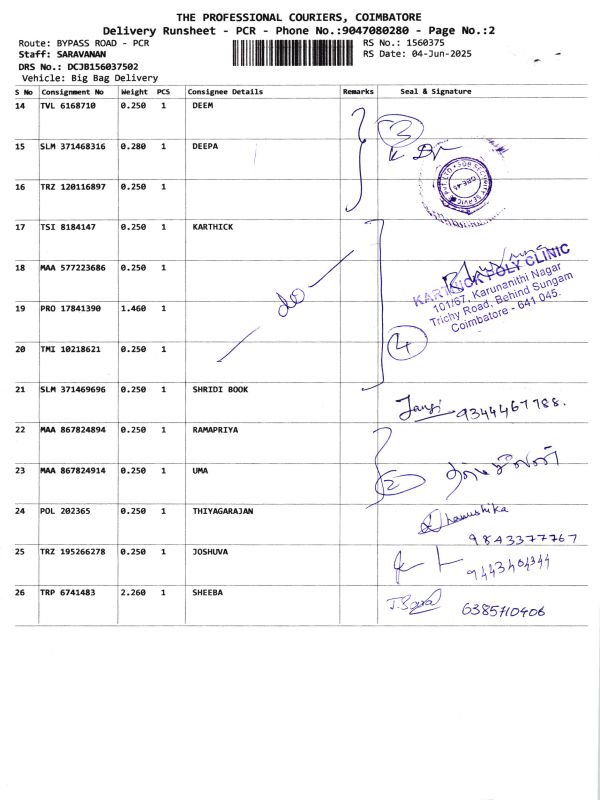 THE PROFESSIONAL COURIERS, COIMBATORE
Delivery Runsheet - PCR - Phone No.:9047080280 - Page No.:2
Route: BYPASS ROAD - PCR
RS No.: 1560375
Staff: SARAVANAN
RS Date: 04-Jun-2025
DRS No.: DCJB156037502
Vehicle: Big Bag Delivery
S No Consignment No Weight PCS Consignee Details Remarks Seal & Signature
14 TVL 6168710 0.250 1 DEEM
3
15 SLM 371468316 0.280 1 DEEPA
16 TRZ 120116897 0.250 1
17 TSI 8184147 0.250 1 KARTHICK
18 MAA 577223686 0.250 1
do
KARTHICK POLY CLINIC
101/67, Karunanithi Nagar
Trichy Road, Behind Sungam
Coimbatore - 641 045.
19 PRO 17841390 1.460 1
4
20 TMI 10218621 0.250 1
21 SLM 371469696 0.250 1 SHRIDI BOOK
9344467788.
22 MAA 867824894 0.250 1 RAMAPRIYA
2
23 MAA 867824914 0.250 1 UMA
24 POL 202365 0.250 1 THIYAGARAJAN
Dhanushika
9843377767
25 TRZ 195266278 0.250 1 JOSHUVA
26 TRP 6741483 2.260 1 SHEEBA
6385710406